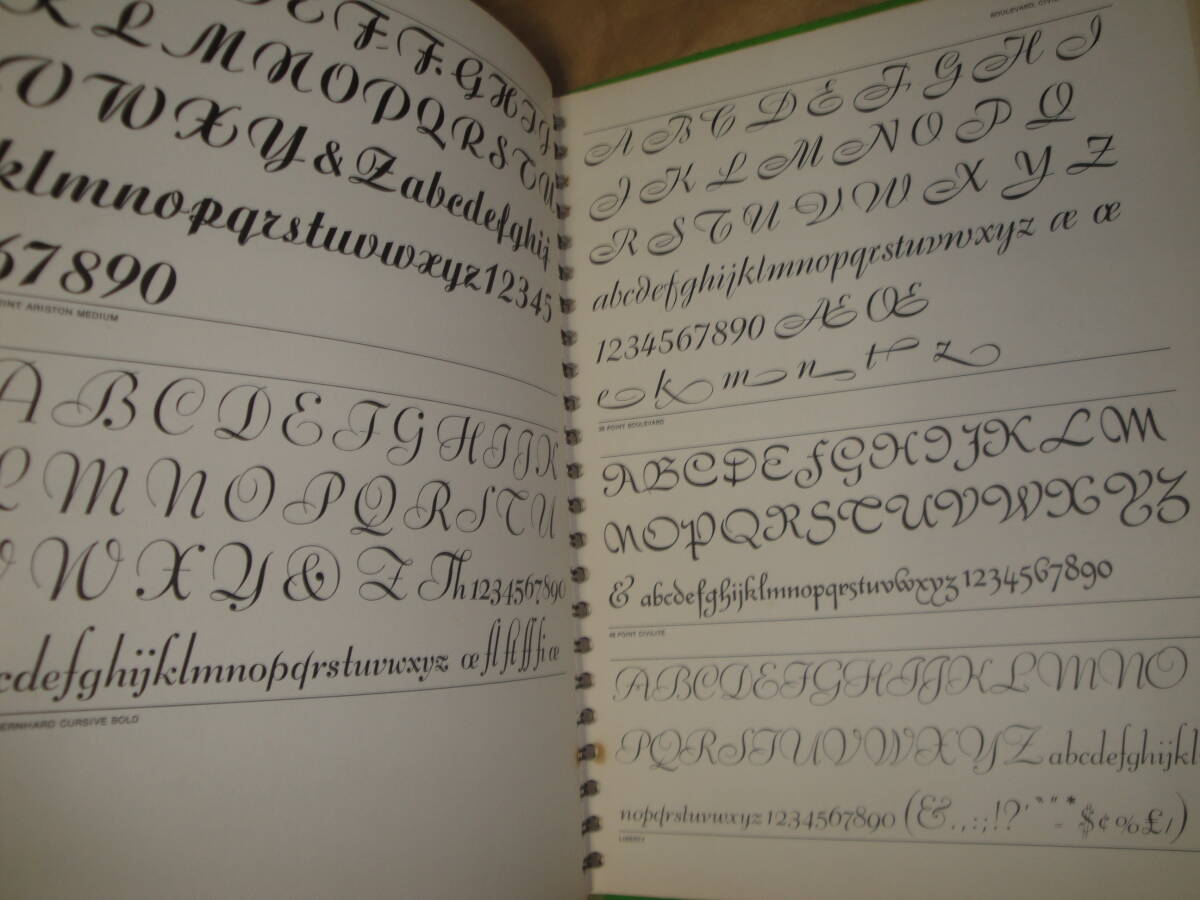 F. F. G H I J
K L M N O P Q R S T U
V W X Y & Z a b c d e f g h i j
k l m n o p q r s t u v w x y z 1 2 3 4 5
6 7 8 9 0
ARISTON MEDIUM
A B C D E F G H I J K
L M N O P Q R S T U
V W X Y & Z Th 1234567890
cdefghijklmnopqrstuvwxyz œ fl ft ff fi æ
BERNHARD CURSIVE BOLD
BOULEVARD,
A B C D E F G H I
J K L M N O P Q
R S T U V W X Y Z
abcdefghijklmnopqrstuvwxyz æ œ
1234567890 Æ Œ
e k m n t z
BOULEVARD
ABCDEFGHIJKLM
NOPQRSTUVWXYZ
& abcdefghijklmnopqrstuvwxyz 1234567890
48 POINT CIVILITE
ABCDEFGHIJKLMNO
PQRSTUVWXYZ abcdefghijkl
nopqrstuvwxyz 1234567890 (&.,:;!?'""-*$¢%£/)
LIBERTY